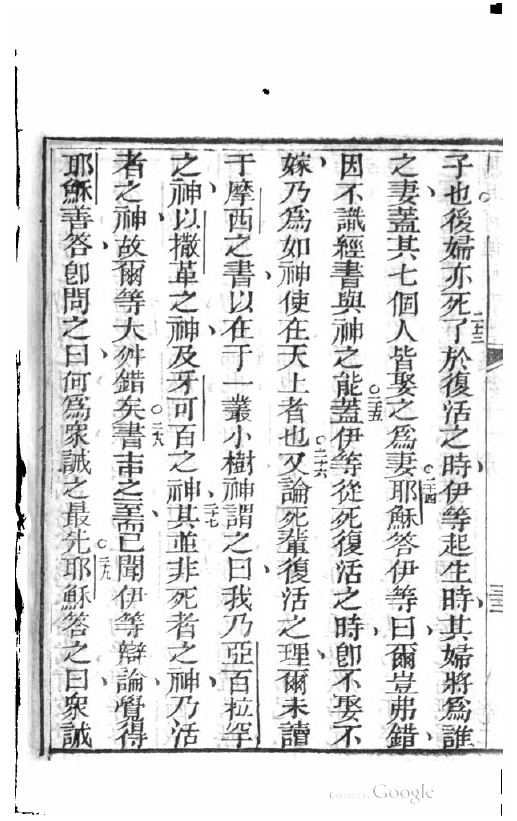 子也後婦亦死了二三於復活之時伊等起生時其婦將爲誰
之妻蓋其七個人皆娶之爲妻二四耶穌答伊等曰爾豈弗錯
因不識經書與神之能二五蓋伊等從死復活之時卽不娶不
嫁乃爲如神使在天上者也二六又論死輩復活之理爾未讀
于摩西之書以在于一叢小樹神謂之曰我乃亞百拉罕
之神以撒革之神及牙可百之神二七其並非死者之神乃活
者之神故爾等大舛錯矣二八書士之一已聞伊等辯論覺得
耶穌善答卽問之曰何爲衆誡之最先二九耶穌答之曰衆誡
Digitized by Google